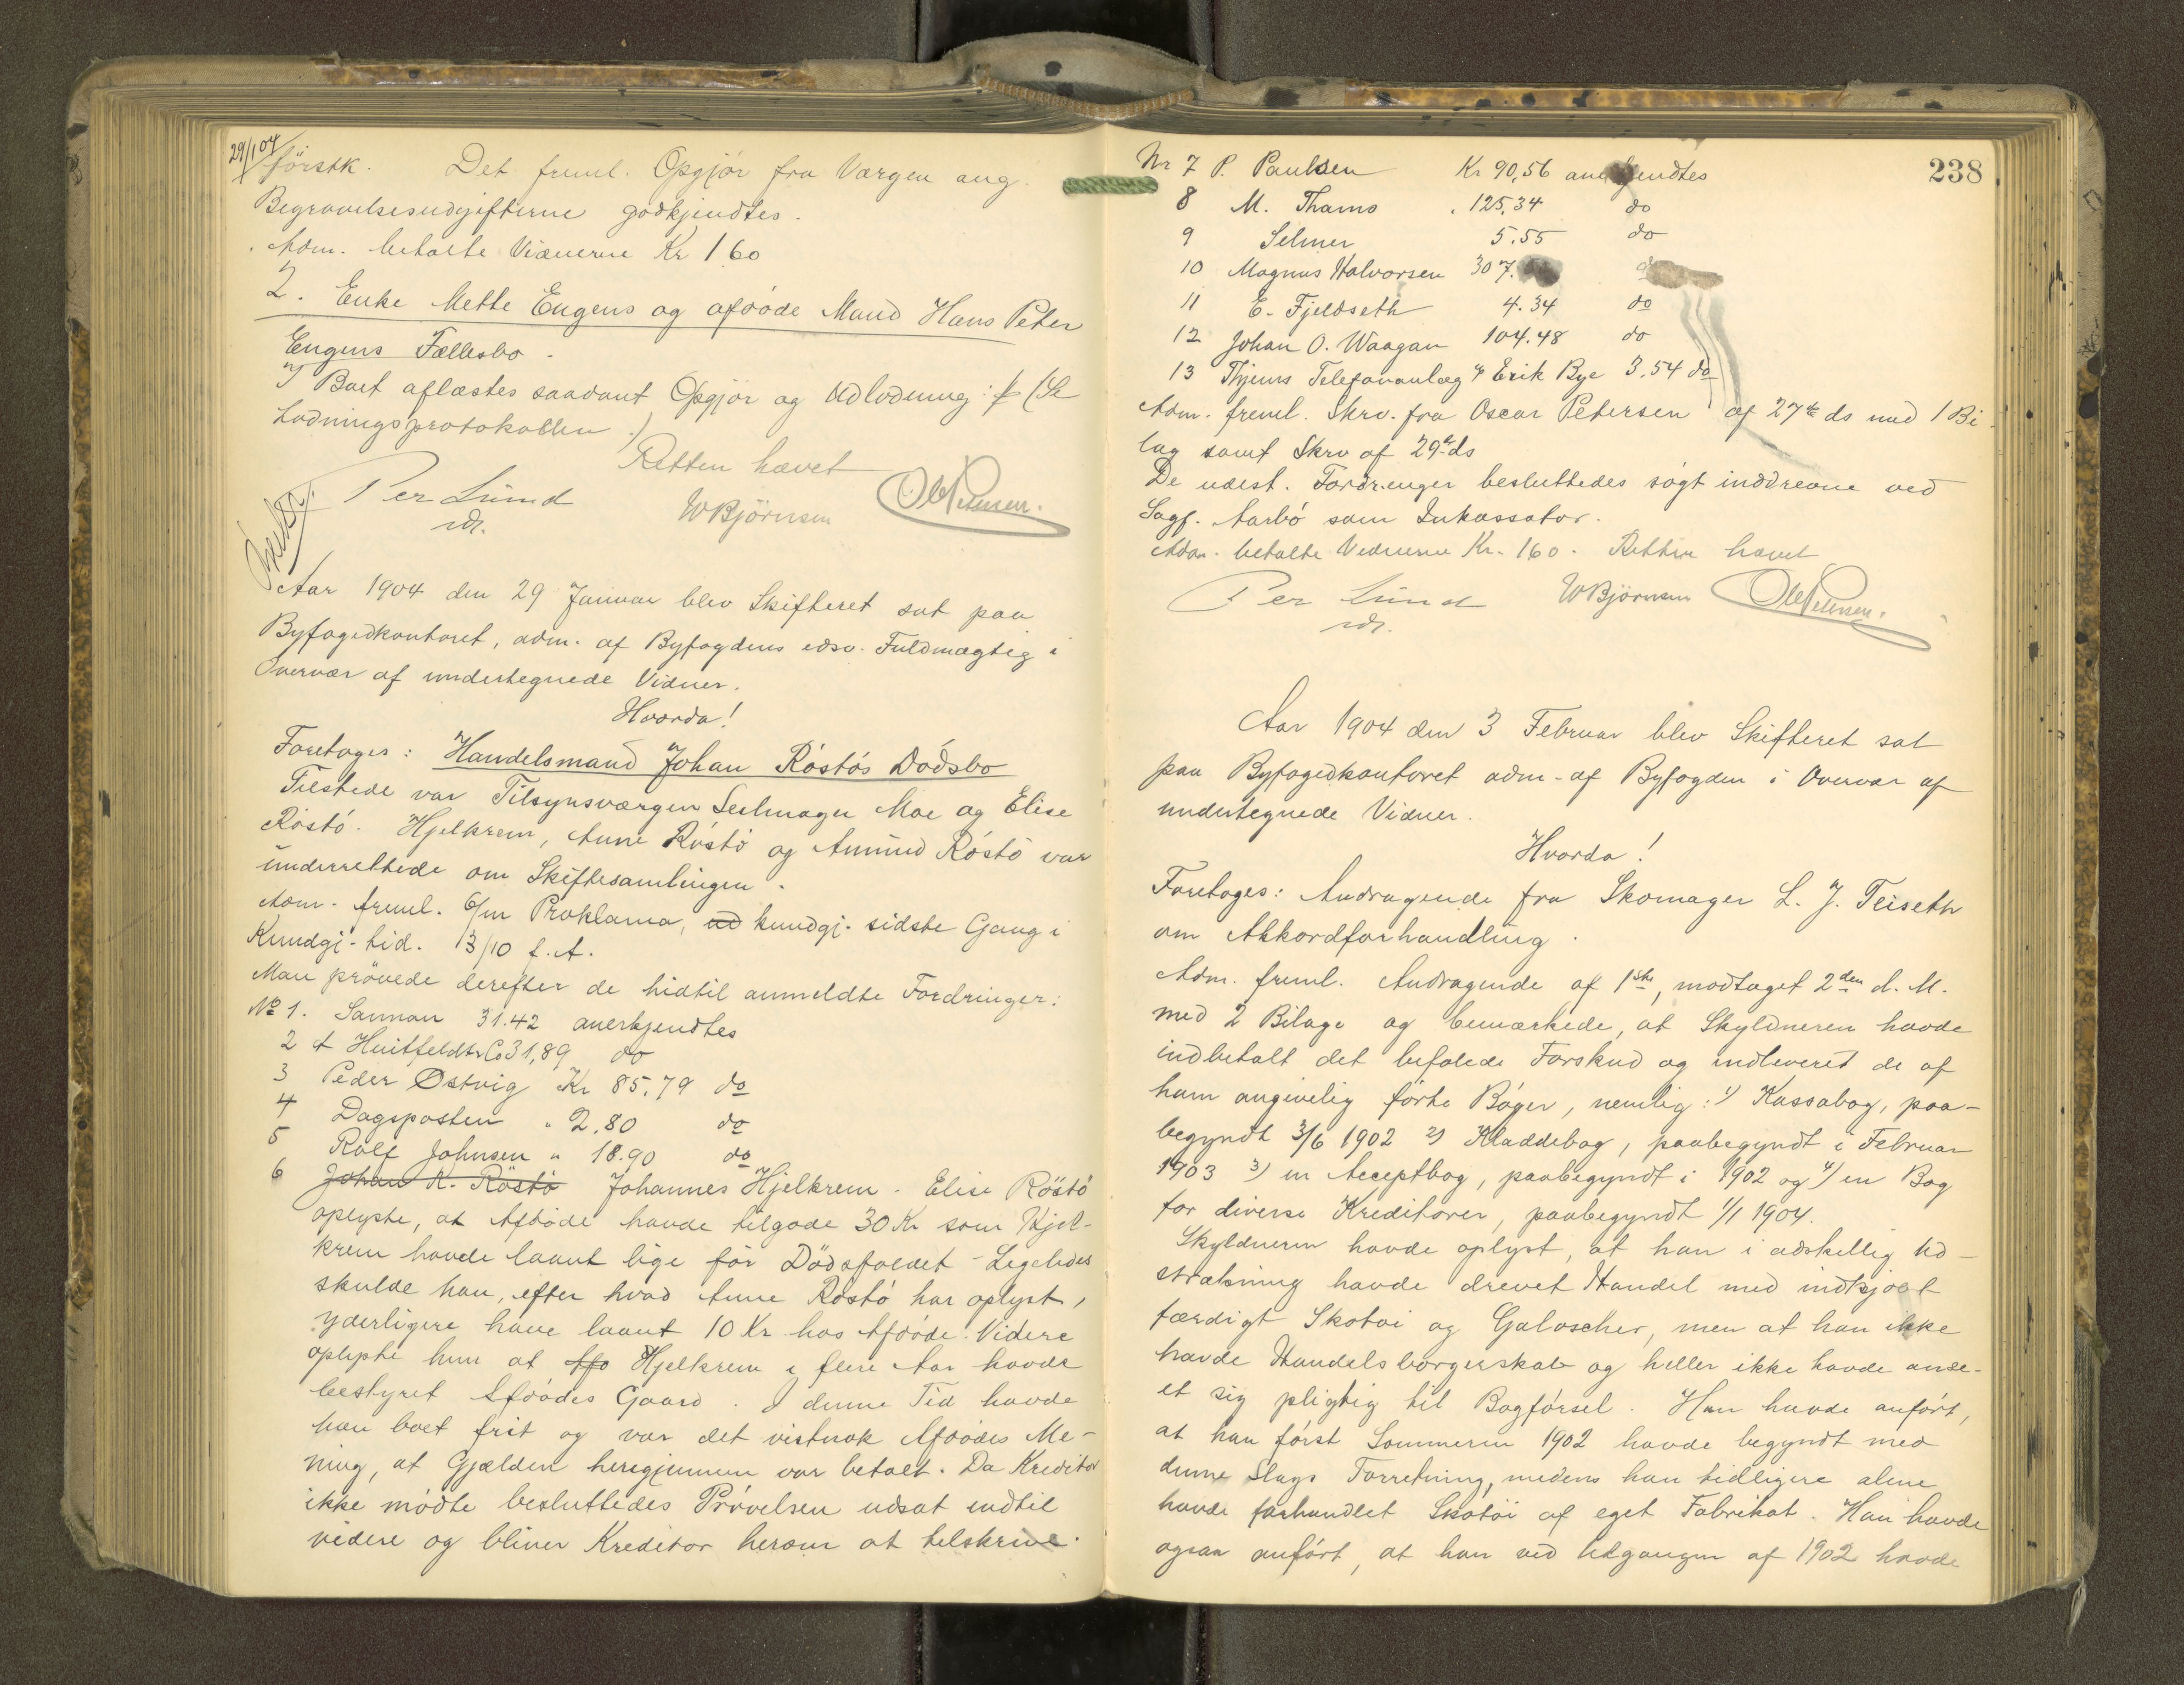 29/1 04
förstk. Det freml. Opgjör fra Værgen ang.
Begravelsesudgifterne godkjendtes.
Adm. betalte Vidnerne Kr 160
2. Enke Mette Engens og afdöde Mand Hans Peter
Engens Fællesbo.
I Boet aflæstes saadant Opgjör og Udlodning: f (Se
Lodningsprotokollen.)
Retten hævet
Per Lund WBjörnsen OlPetersen.
cst.
Aar 1904 den 29 Januar blev Skifteret sat paa
Byfogedkontoret, adm. af Byfogdens edsv. Fuldmægtig i
Overvær af undertegnede Vidner.
Hvorda!
Foretoges: Handelsmand Johan Röstös Dödsbo
Tilstede var Tilsynsværgen Seilmager Moe og Elise
Röstö. Hjelkrem, Anne Röstö og Amund Röstö var
underrettede om Skiftesamlingen.
Adm. freml. 6/m Proklama, ud kundgj. sidste Gang i
Kundgj-tid. 13/10 f. A.
Man prövede derefter de hidtil anmeldte Fordringer:
No 1. Sannan 31.42 anerkjendtes
2 A Huitfeldt & Co 31,89 do
3 Peder Østvig Kr 85.79 do
4 Dagsposten " 2.80 do
5 Rolf Johnsen " 18.90 do
6 Johan A. Röstö Johannes Hjelkrem. Elise Röstö
oplyste, at Afdöde havde tilgode 30 Kr som Hjel-
krem havde laant lige för Dödsfaldet - Ligeledes
skulde han, efter hvad Anne Röstö har oplyst,
yderligere have laant 10 Kr hos Afdöde. Videre
oplyste hun at Hjelkrem i flere Aar havde
bestyret Afdödes Gaard. I denne Tid havde
han boet frit og var det vistnok Afdödes Me-
ning, at Gjælden herigjennem var betalt. Da Kreditor
ikke mödte besluttedes Prövelsen udsat indtil
videre og bliver Kreditor herom at tilskrive.
238
Nr 7 P. Paulsen Kr 90,56 anerkjendtes
8 M. Thams " 125,34 do
9 Selmer 5.55 do
10 Magnus Halvorsen 307. do
11 E. Fjeldseth 4.34 do
12 Johan O. Waagan 104.48 do
13 Thjems Telefonanlæg v/ Erik Bye 3.54 do
Adm. freml. Skrv. fra Oscar Petersen af 27de ds med 1 Bi-
lag samt Skrv af 29de ds
De udest. Fordringer besluttedes sögt inddrevne ved
Sagf. Aarbö som Inkassator.
Adm. betalte Vidnerne Kr. 160. Retten hævet
Per Lund WBjörnsen OlPetersen.
cst.
Aar 1904 den 3 Februar blev Skifteret sat
paa Byfogedkontoret adm. af Byfogden i Overvær af
undertegnede Vidner.
Hvorda!
Foretoges: Andragende fra Skomager L. J. Teiseth
om Akkordforhandling.
Adm. freml. Andragende af 1ste, modtaget 2den d. M.
med 2 Bilage og bemærkede, at Skyldneren havde
indbetalt det befalede Forskud og indleveret de af
ham angivelig förte Böger, nemlig: 1) Kassabog, paa-
begyndt 3/6 1902 2) Kladdebog, paabegyndt i Februar
1903 3) en Acceptbog, paabegyndt i 1902 og 4) en Bog
for diverse Kreditorer, paabegyndt 1/1 1904.
Skyldneren havde oplyst, at han i adskellig Ud-
strækning havde drevet Handel med indkjöbt
færdigt Skotöi og Galoscher, men at han ikke
havde Handelsborgerskab og heller ikke havde anse-
et sig pligtig til Bogförsel. Han havde anfört,
at han först Sommeren 1902 havde begyndt med
denne Slags Forretning, medens han tidligere alene
havde forhandlet Skotöi af eget Fabrikat. Han havde
ogsaa anfört, at han ved Udgangen af 1902 havde